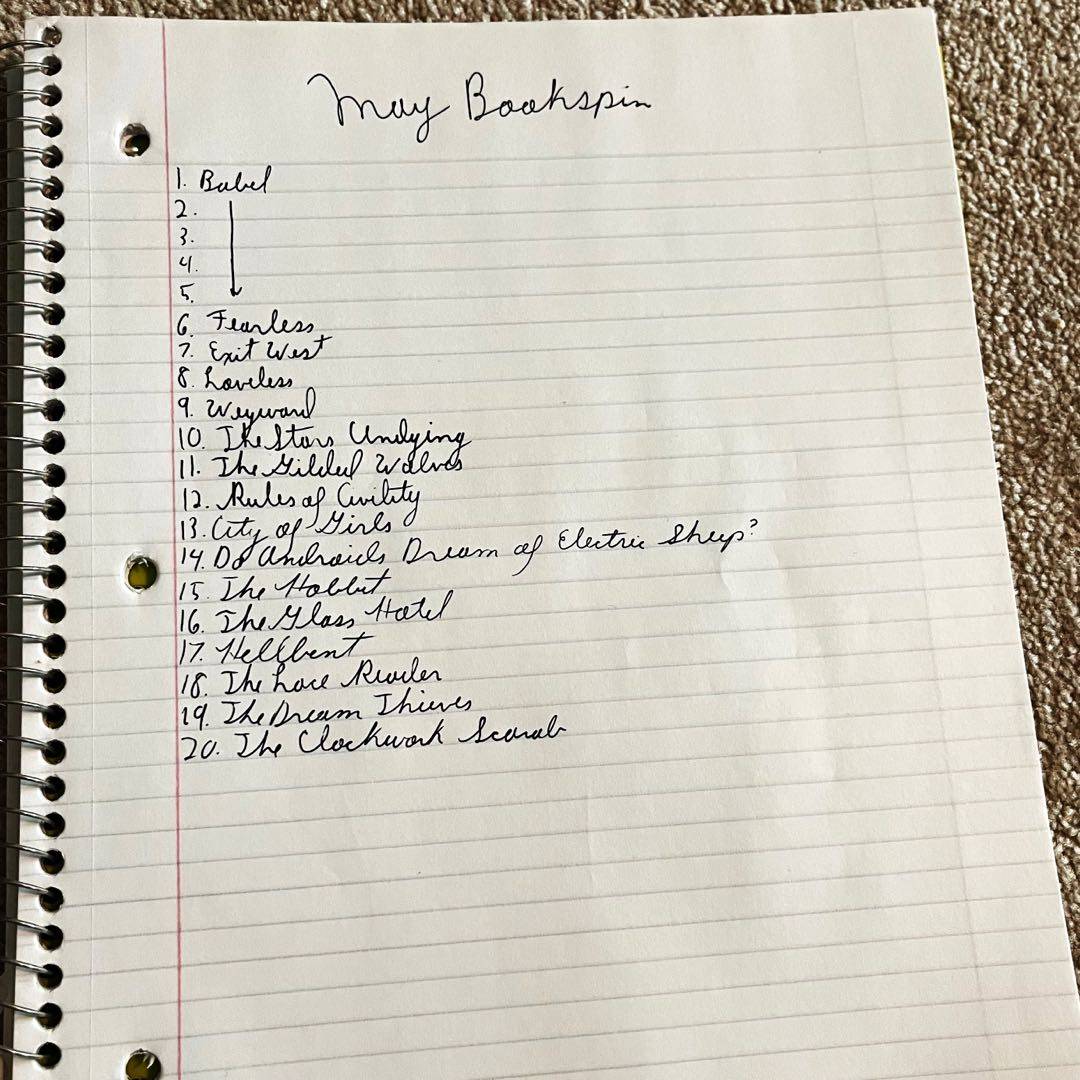 May Bookspin
1. Babel
2.
3.
4.
5.
6. Fearless
7. Exit West
8. Loveless
9. Weyward
10. The Stars Undying
11. The Gilded Wolves
12. Rules of Civility
13. City of Girls
14. Do Androids Dream of Electric Sheep?
15. The Hobbit
16. The Glass Hotel
17. Hell Bent
18. The Lace Reader
19. The Dream Thieves
20. The Clockwork Scarab